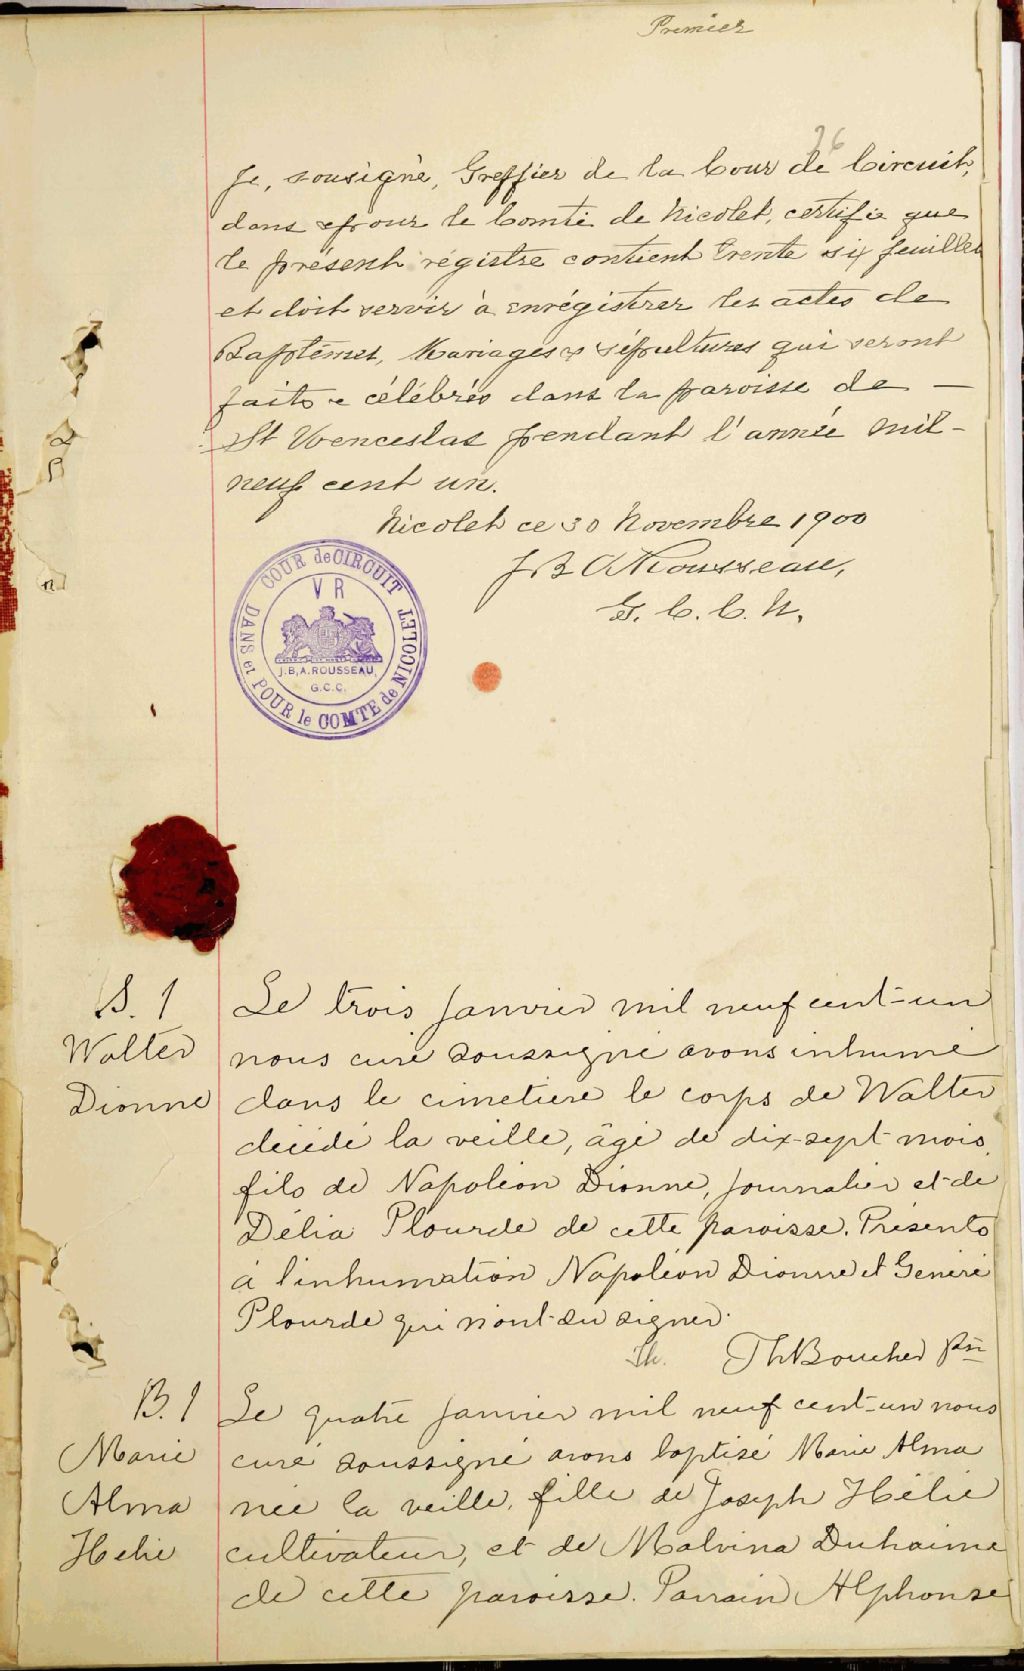 Premier
36
Je, sousigné, Greffier de la Cour de Circuit,
dans & pour le Comté de Nicolet, certifie que
le présent régistre contient trente six feuillets
et doit servir à enrégistrer les actes de
Baptêmes, Mariages & sépultures qui seront
faits & célébrés dans la paroisse de —
St Wenceslas pendant l'année mil-
neuf cent un.
Nicolet ce 30 Novembre 1900
J B A Rousseau,
G. C. C. N.
COUR de CIRCUIT
DANS et POUR le COMTE de NICOLET
V R
J.B.A. ROUSSEAU,
G.C.C.
S. 1
Walter
Dionne
Le trois janvier mil neuf cent-un
nous curé soussigné avons inhumé
dans le cimetière le corps de Walter
décédé la veille, âgé de dix-sept mois,
fils de Napoléon Dionne, journalier et de
Délia Plourde de cette paroisse. Présents
à l'inhumation Napoléon Dionne et Généré
Plourde qui n'ont su signer.
Th. ThBoucher Ptre
B. 1
Marie
Alma
Helie
Le quatre janvier mil neuf cent-un nous
curé soussigné avons baptisé Marie Alma
née la veille, fille de Joseph Hélie
cultivateur, et de Malvina Duhaime
de cette paroisse. Parrain Alphonse